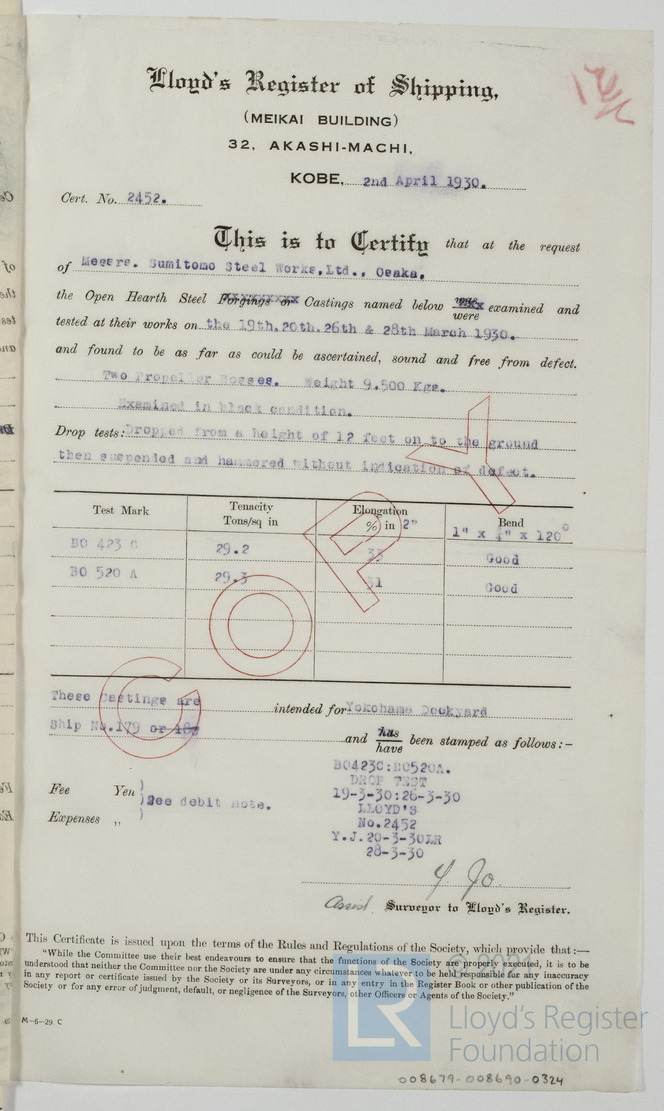 Lloyd's Register of Shipping,
(MEIKAI BUILDING)
32, AKASHI-MACHI,
KOBE, 2nd April 1930.
Cert. No. 2452.
This is to Certify that at the request
of Messrs. Sumitomo Steel Works, Ltd., Osaka.
the Open Hearth Steel Forgings or Castings named below was were examined and
tested at their works on the 19th. 20th. 26th & 28th March 1930.
and found to be as far as could be ascertained, sound and free from defect.
Two Propellor Bosses. Weight 9,500 Kgs.
Examined in black condition.
Drop tests: Dropped from a height of 12 feet on to the ground
then suspended and hammered without indication of defect.
Test Mark Tenacity Tons/sq in Elongation % in 2" Bend 1" x ¾" x 120°
BO 423 C 29.2 33 Good
BO 520 A 29.3 31 Good
COPY
These castings are intended for Yokohama Dockyard
Ship No. 179 or and has have been stamped as follows:–
BO423C:BO520A.
DROP TEST
Fee Yen
19-3-30:26-3-30
See debit note.
LLOYD'S
Expenses „
No.2452
Y.J. 20-3-30LR
28-3-30
Y. Jo.
Assist. Surveyor to Lloyd's Register.
This Certificate is issued upon the terms of the Rules and Regulations of the Society, which provide that :—
"While the Committee use their best endeavours to ensure that the functions of the Society are properly executed, it is to be
understood that neither the Committee nor the Society are under any circumstances whatever to be held responsible for any inaccuracy
in any report or certificate issued by the Society or its Surveyors, or in any entry in the Register Book or other publication of the
Society or for any error of judgment, default, or negligence of the Surveyors, other Officers or Agents of the Society."
M-6-29. C
© 2021
LR
Lloyd's Register
Foundation
008679-008690-0324